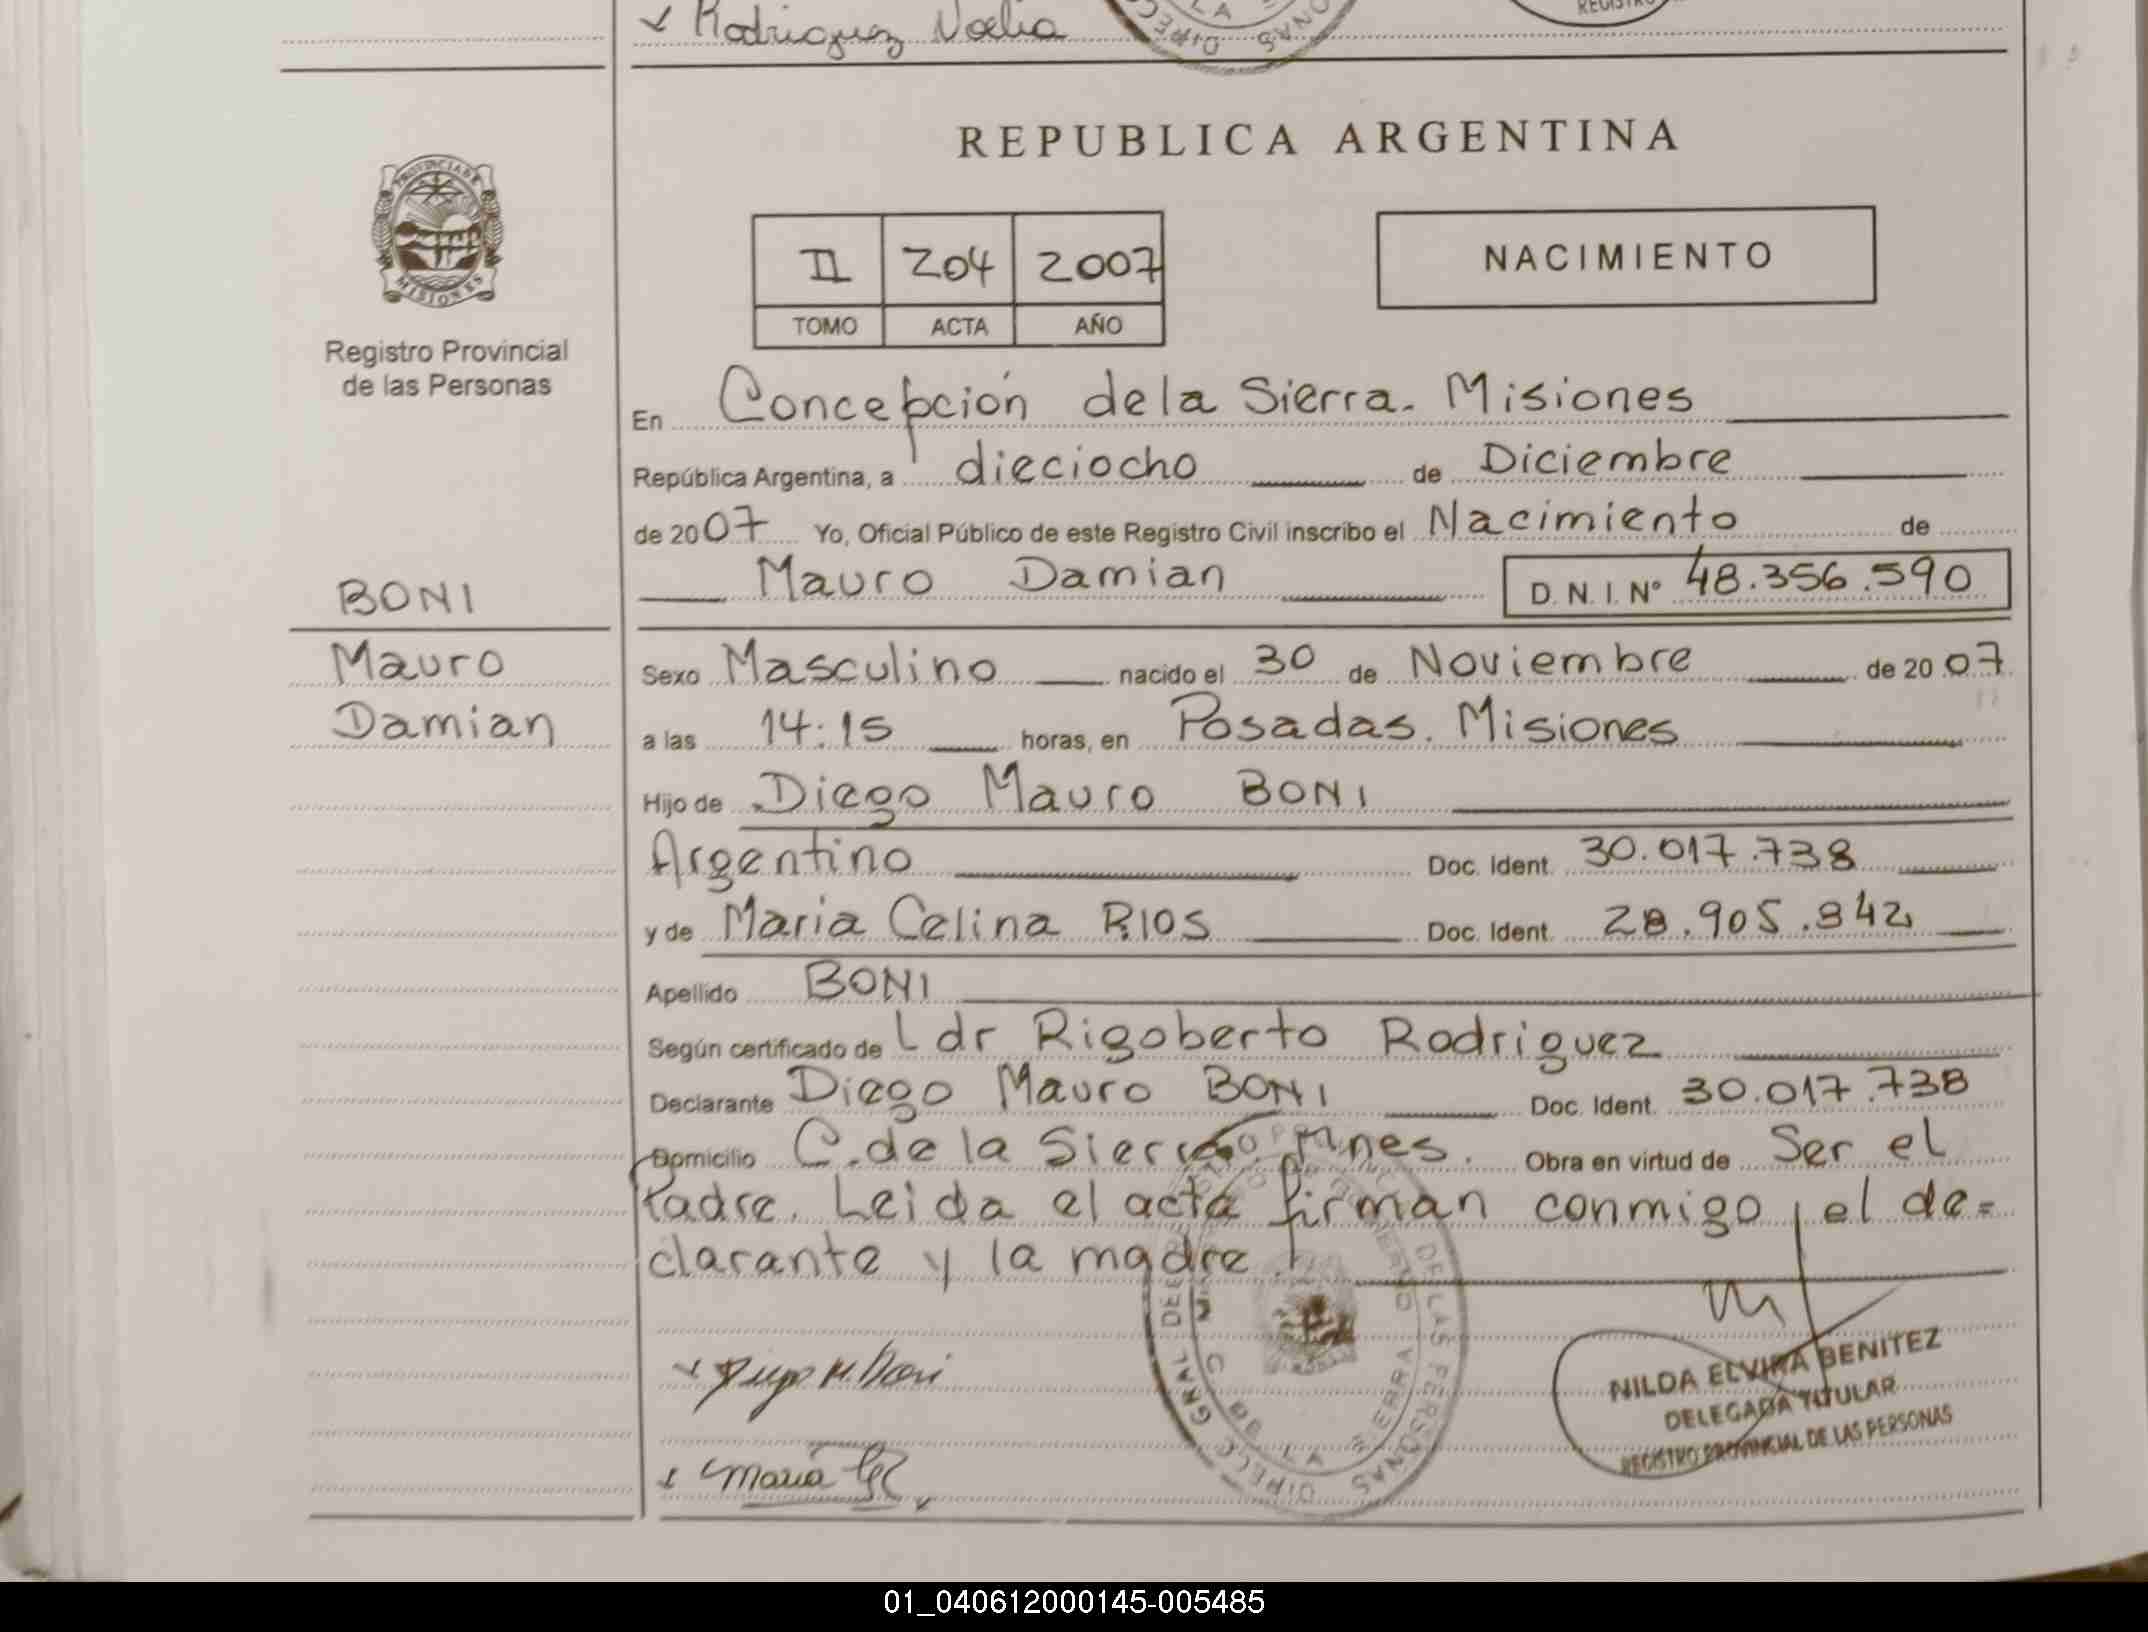 Rodriguez Noelia
REGISTRO
PROVINCIA DE
MISIONES
Registro Provincial
de las Personas
REPUBLICA ARGENTINA
II 204 2007
TOMO ACTA AÑO
NACIMIENTO
En Concepción de la Sierra. Misiones
República Argentina, a dieciocho de Diciembre
de 2007 Yo, Oficial Público de este Registro Civil inscribo el Nacimiento de
Mauro Damian D. N. I. Nº 48.356.590
BONI
Mauro
Damian
Sexo Masculino nacido el 30 de Noviembre de 2007
a las 14:15 horas, en Posadas. Misiones
Hijo de Diego Mauro BONI
Argentino Doc. Ident. 30.017.738
y de Maria Celina RIOS Doc. Ident. 28.905.842
Apellido BONI
Según certificado de Ldr Rigoberto Rodriguez
Declarante Diego Mauro BONI Doc. Ident. 30.017.738
Domicilio C. de la Sierra. Mnes. Obra en virtud de Ser el
Padre. Leida el acta firman conmigo, el de=
clarante y la madre
Diego M. Boni
Maria
DIRECC. GRAL. DE LAS PERSONAS
C. DE LA SIERRA
NILDA ELVIRA BENITEZ
DELEGADA TITULAR
REGISTRO PROVINCIAL DE LAS PERSONAS
01_040612000145-005485